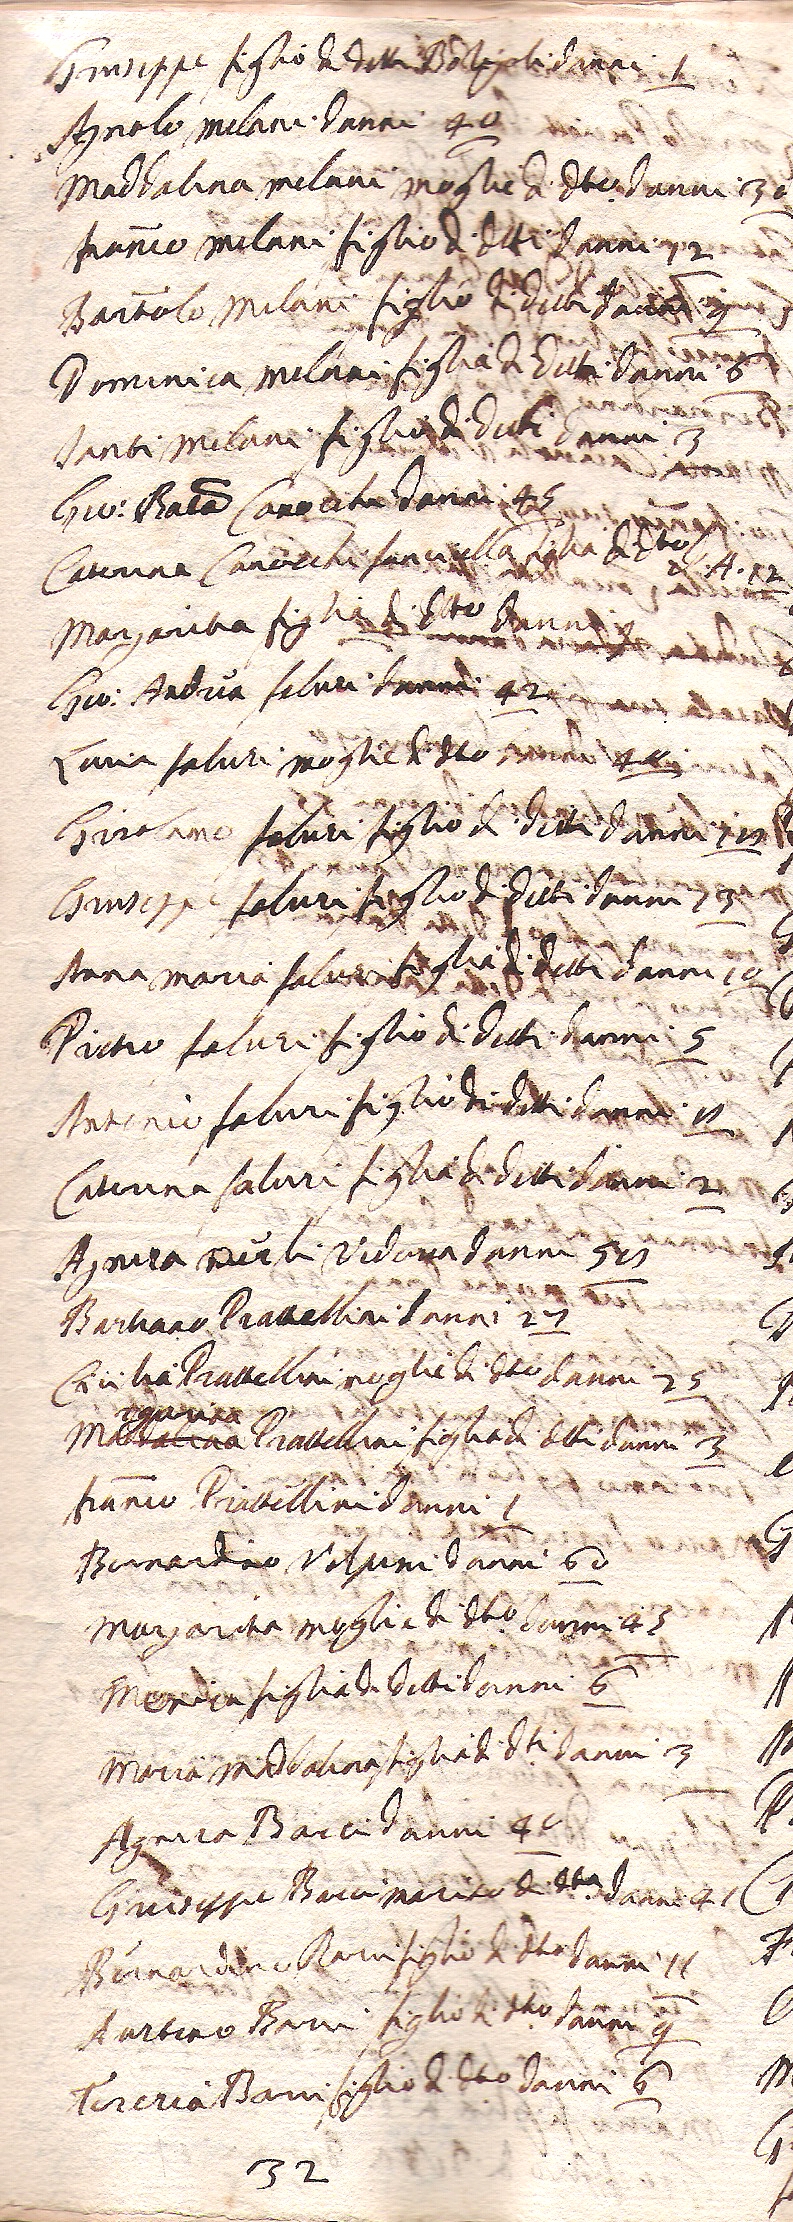 Giuseppe figlio di detti d'anni 1
Agnolo Milani d'anni 40
Maddalina Milani moglie di dto. d'anni 30
Franco Milani figlio di dtti d'anni 12
Bartolo Milani figlio di detti d'anni 9
Dominica Milani figlia di detti d'anni 6
Santi Milani figlio di detti d'anni 3
Gio: Batta Canocchi d'anni 45
Caterina Canocchi fanciulla figlia di dto
d. A. 12
Margarita figlia di dtto d'anni
Gio: Andrea Saluri d'anni 42
Lucia Saluri moglie di dto d'anni
Girolamo Saluri figlio di detti d'anni
Giuseppe Saluri figlio di detti d'anni 13
Anna Maria Saluri figlia di detti d'anni 10
Pietro Saluri figlio di detti d'anni 5
Antonio Saluri figlio di detti d'anni
Caterina Saluri figlia di detti d'anni 2
Agnesa vidova d'anni
Prattellini d'anni 27
Cicilia Prattellini moglie di dto d'anni 25
rgarita
Maddalina Prattellini figlia di dtti d'anni 3
Franco Prattellini d'anni 1
Bernardino Volpini d'anni 60
Margarita moglie di dto d'anni 43
figlia di detti d'anni 6
Maria Maddalina figlia di dti d'anni 3
Agnesa Bacci d'anni 40
Giuseppe Bacci marito di dta d'anni 41
Bernardino Bacci figlio di dto d'anni 11
Bacci figlio di dto d'anni 9
Teresia Bacci figlia di dto d'anni 6
32